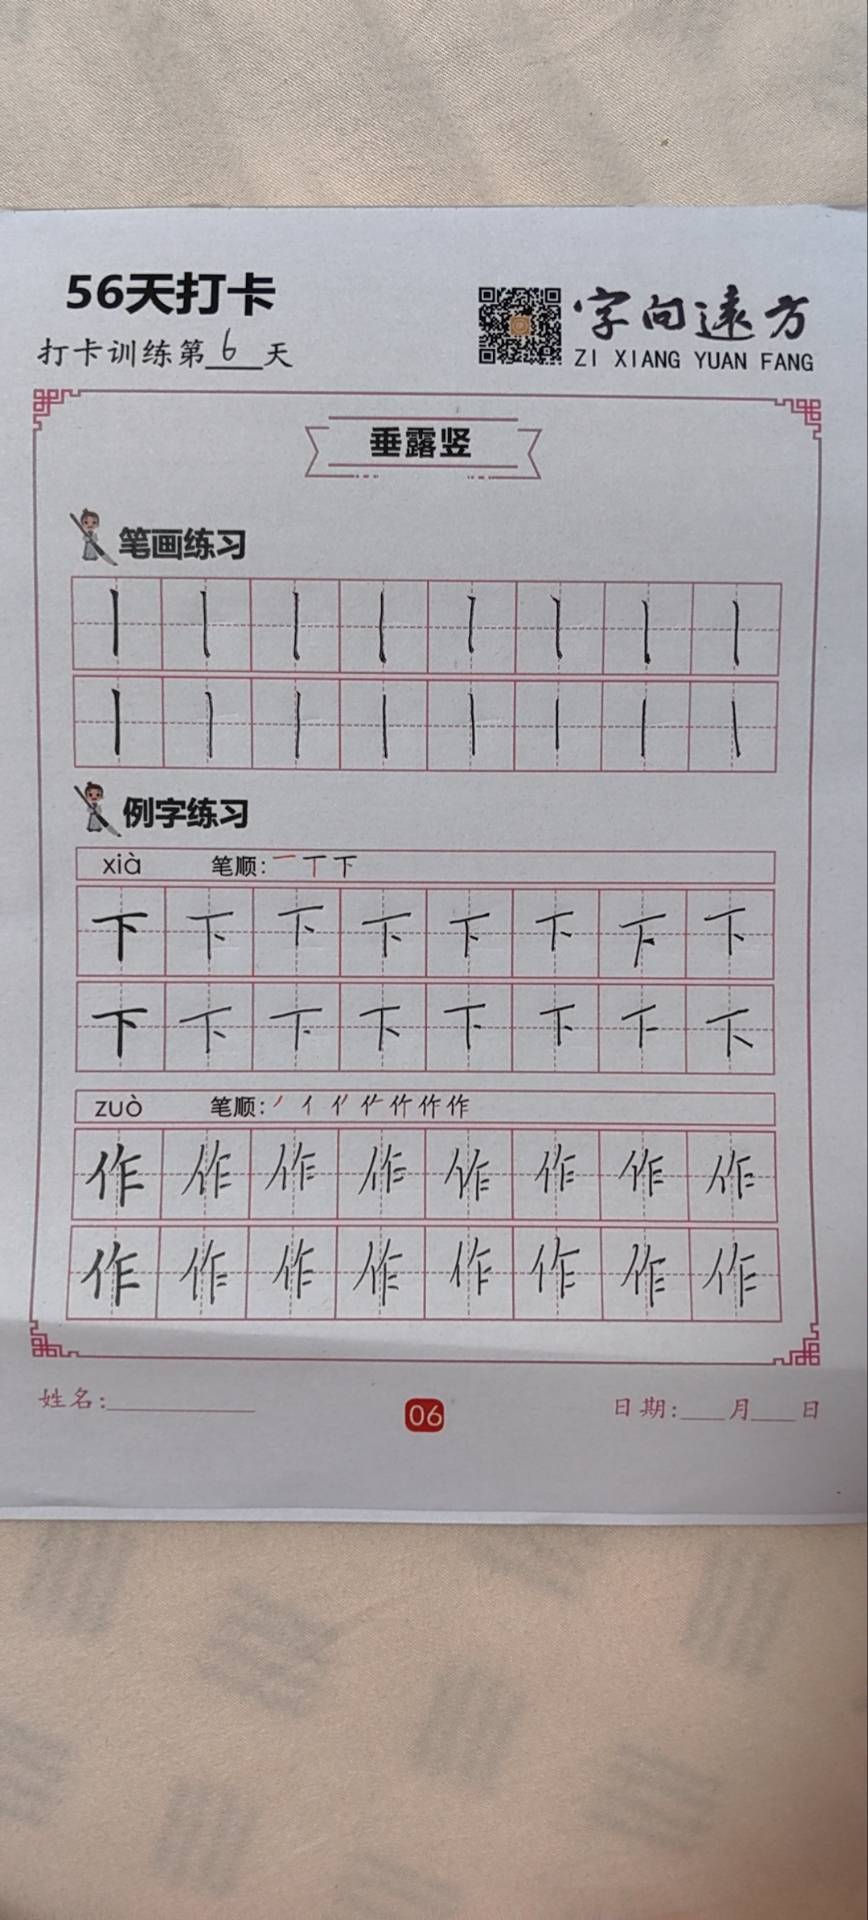 56天打卡
打卡训练第6天
字向远方
ZI XIANG YUAN FANG
垂露竖
笔画练习
丨丨丨丨丨丨丨丨
丨丨丨丨丨丨丨丨
例字练习
xià 笔顺:一丅下
下下下下下下下下
下下下下下下下下
zuò 笔顺:丿亻亻𠂉作作作
作作作作作作作作
作作作作作作作作
姓名:
06
日期:___月___日